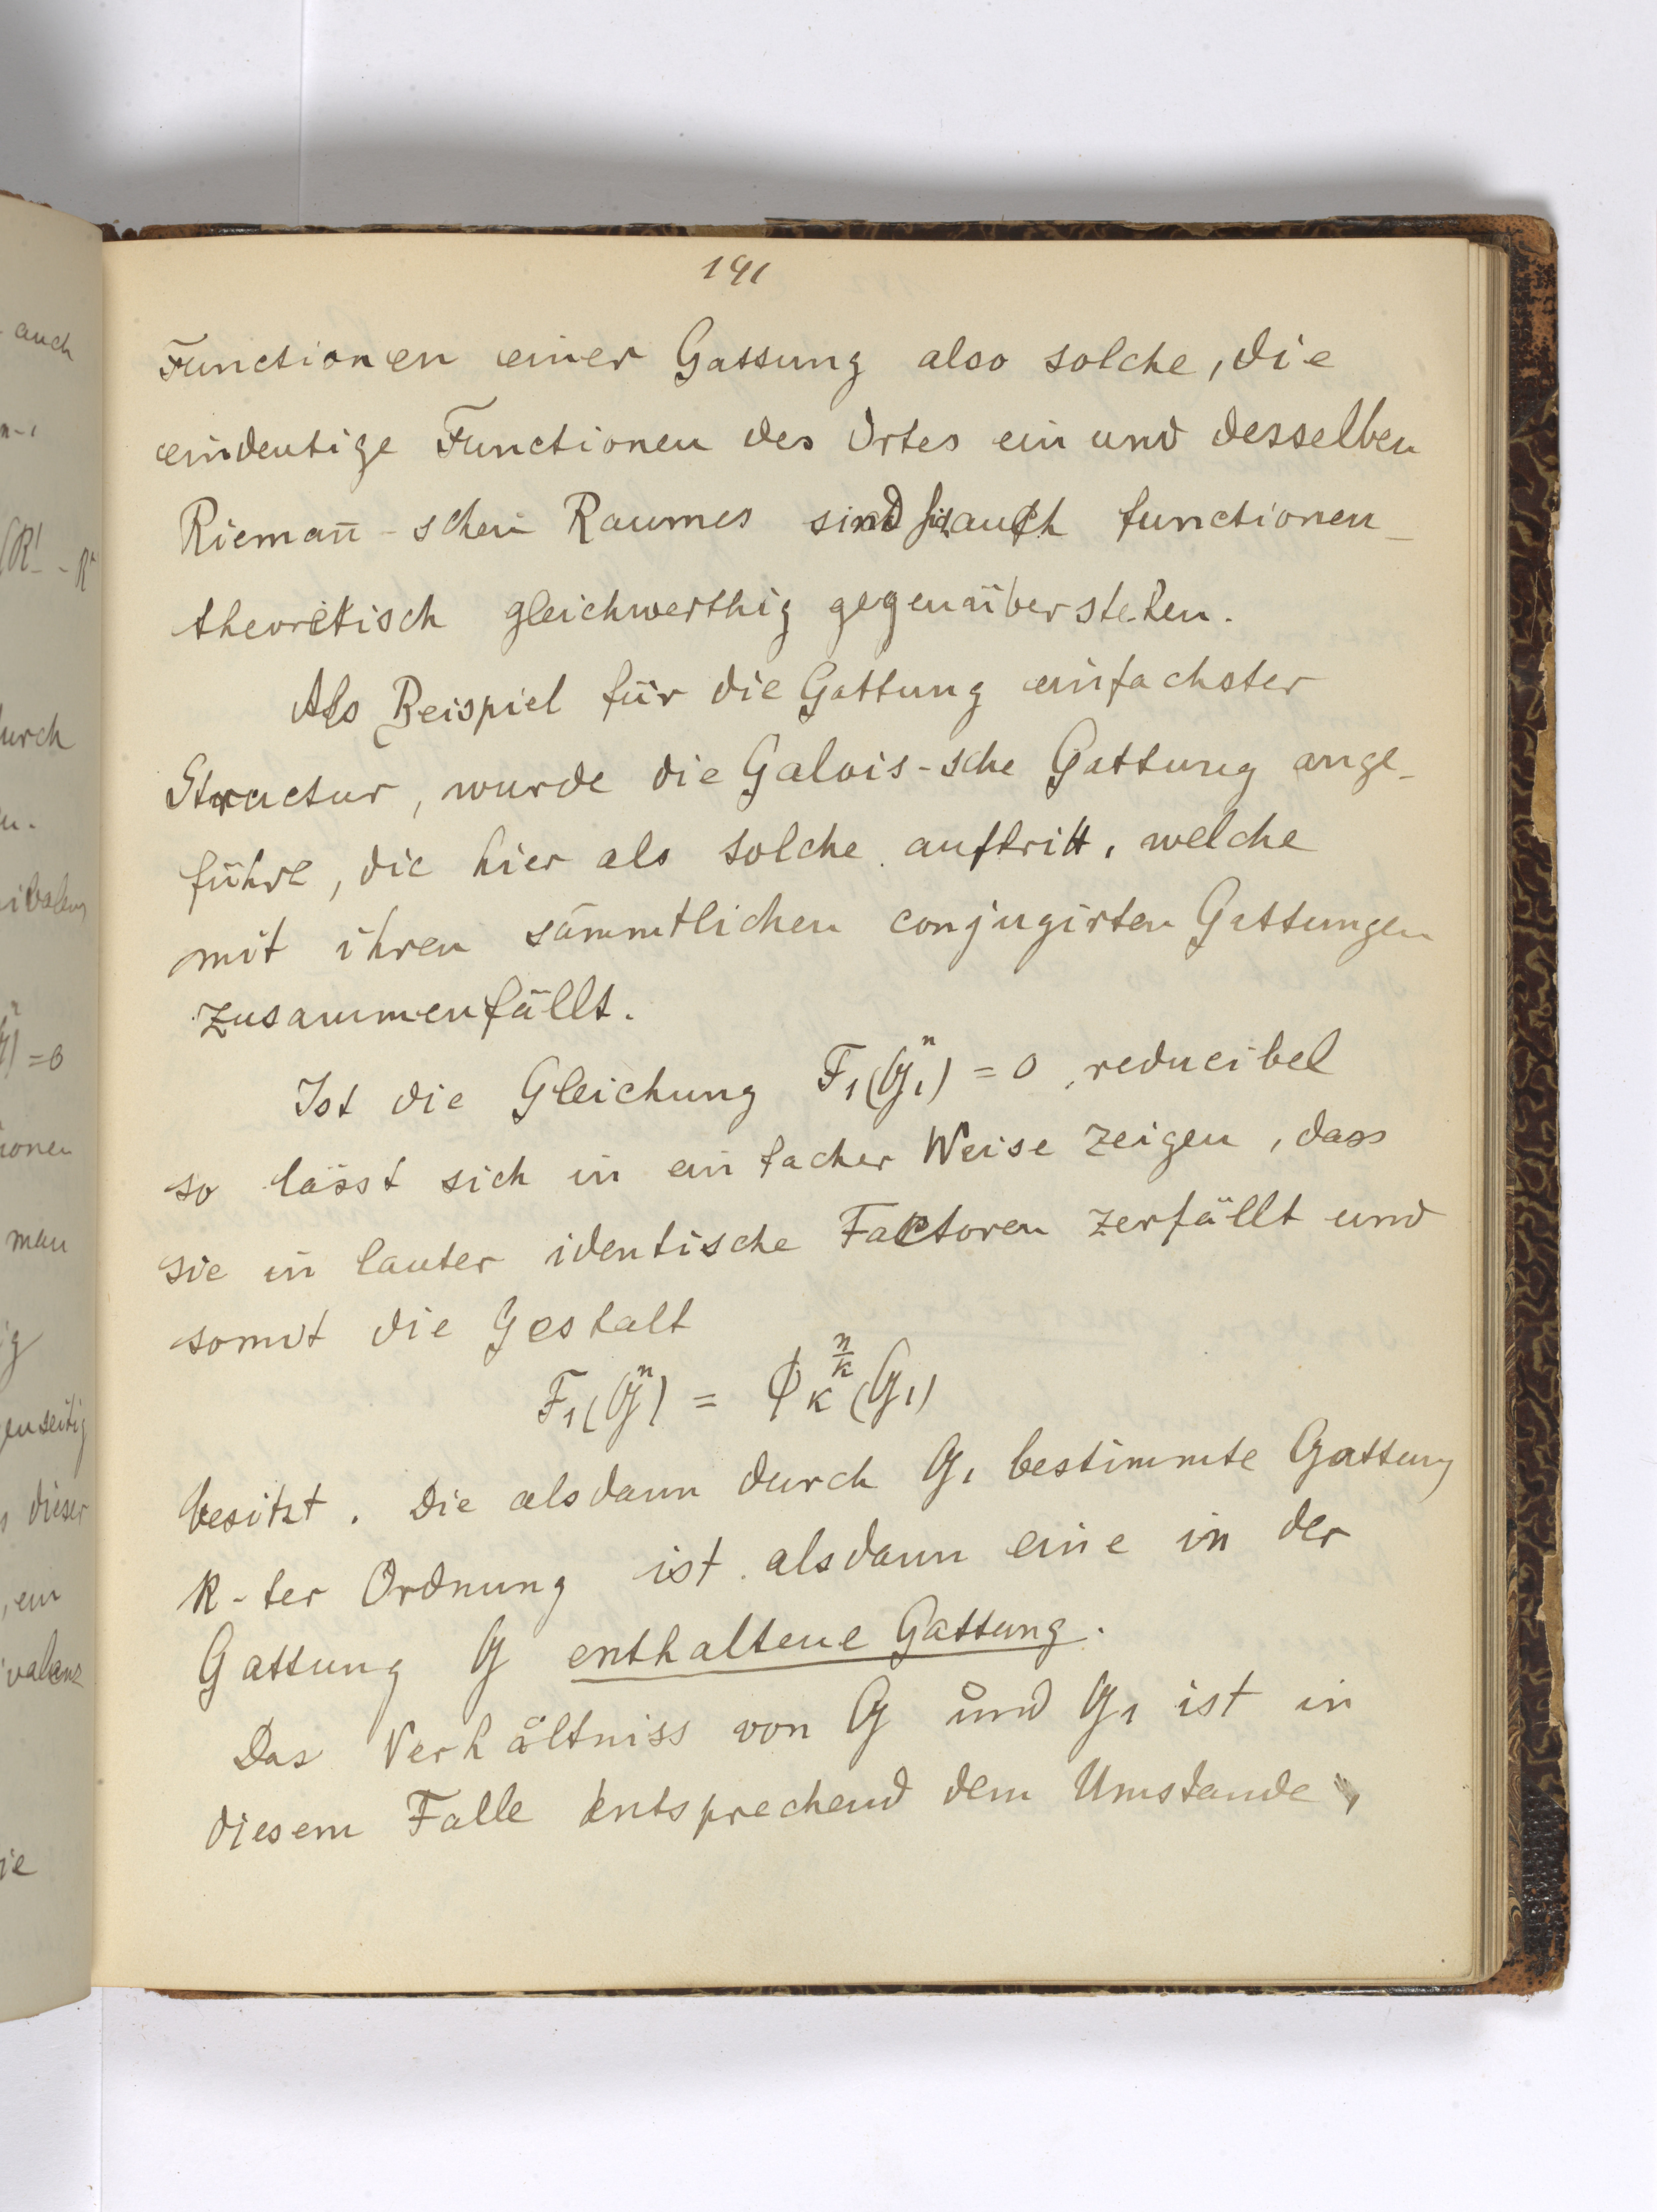 191
auch
n-1
(R' - R
durch
n.
ivalenz
=0
ionen
man
ig
genseitig
s dieser
, ein
ivalenz
ie
Functionen einer Gattung also solche, die
eindeutige Functionen des Ortes ein und desselben
Riemañ-schen Raumes sind auch functionen-
theoretisch gleichwerthig gegenüberstehen.
Als Beispiel für die Gattung einfachster
Structur, wurde die Galois-sche Gattung ange-
führt, die hier als solche auftritt, welche
mit ihren sämmtlichen conjugirten Gattungen
zusammenfällt.
Ist die Gleichung F₁(G₁ⁿ) = 0 reducibel
so lässt sich in einfacher Weise zeigen, dass
sie in lauter identische Factoren zerfällt und
somit die Gestalt
F₁(Gⁿ) = ϕ_k^{n/k}(G₁)
besitzt. Die alsdann durch G₁ bestimmte Gattung
k-ter Ordnung ist alsdann eine in der
Gattung G enthaltene Gattung.
Das Verhältniss von G und G₁ ist in
diesem Falle entsprechend dem Umstande,